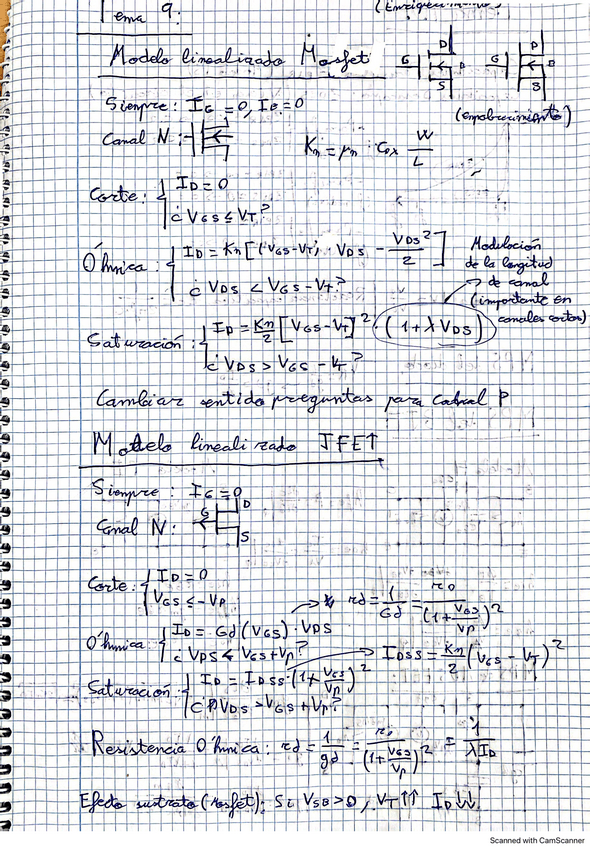 Tema 9:
(Enriquecimiento)
Modelo linealizado Mosfet
G D B S G D B S
Siempre: IG = 0, IB = 0
(empobrecimiento)
Canal N:
Kn = μn · Cox W/L
Corte: { ID = 0
¿ VGS ≤ VT?
Óhmica: { ID = Kn [(VGS - VT) · VDS - VDS²/2]
¿ VDS < VGS - VT?
Modulación
de la longitud
de canal
(importante en
canales cortos)
Saturación: { ID = Kn/2 [VGS - VT]² · (1 + λ VDS)
¿ VDS > VGS - VT?
Cambiar sentido preguntas para Canal P
Modelo linealizado JFET
Siempre: IG = 0
Canal N: G D S
Corte: { ID = 0
VGS ≤ -VP
rd = 1/Gd = r0/(1 + VGS/VP)²
Óhmica: { ID = Gd (VGS) · VDS
¿ VDS < VGS + VP?
IDSS = Kn/2 (VGS - VT)²
Saturación: { ID = IDSS · (1 + VGS/VP)²
¿ VDS > VGS + VP?
Resistencia Óhmica: rd = 1/gd = r0/(1 + VGS/VP)² = 1/λID
Efecto sustrato (Mosfet): Si VSB > 0, VT ↑↑ ID ↓↓
Scanned with CamScanner